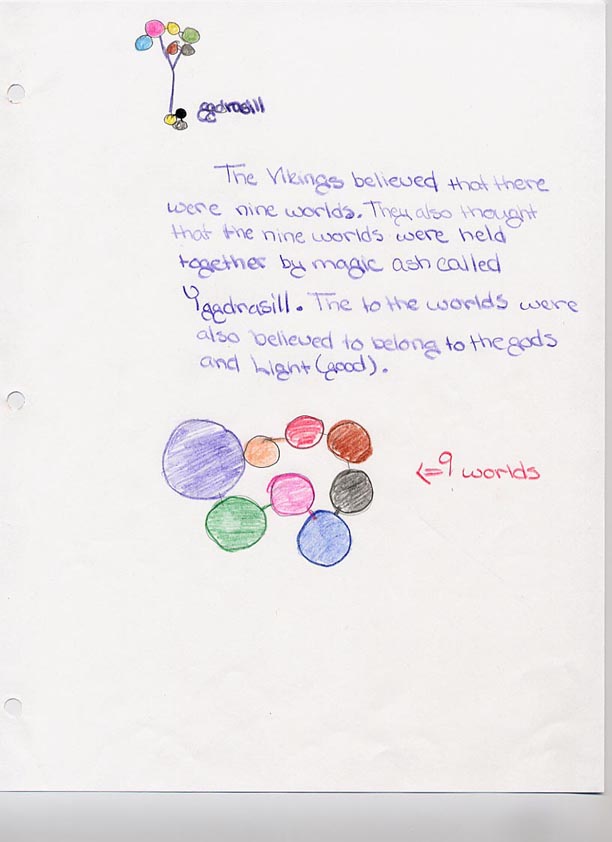 ggdrasill
The Vikings believed that there
were nine worlds. They also thought
that the nine worlds were held
together by magic ash called
Yggdrasill. The to the worlds were
also believed to belong to the gods
and Light (good).
<= 9 worlds